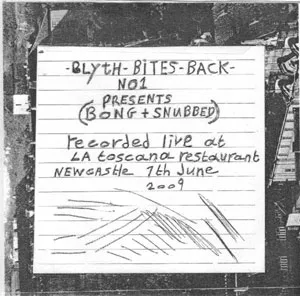 -BLYTH-BITES-BACK-
NO1
PRESENTS
(BONG + SNUBBED)
recorded live at
LA toscana restaurant
NEWCASTLE 7th June
2009